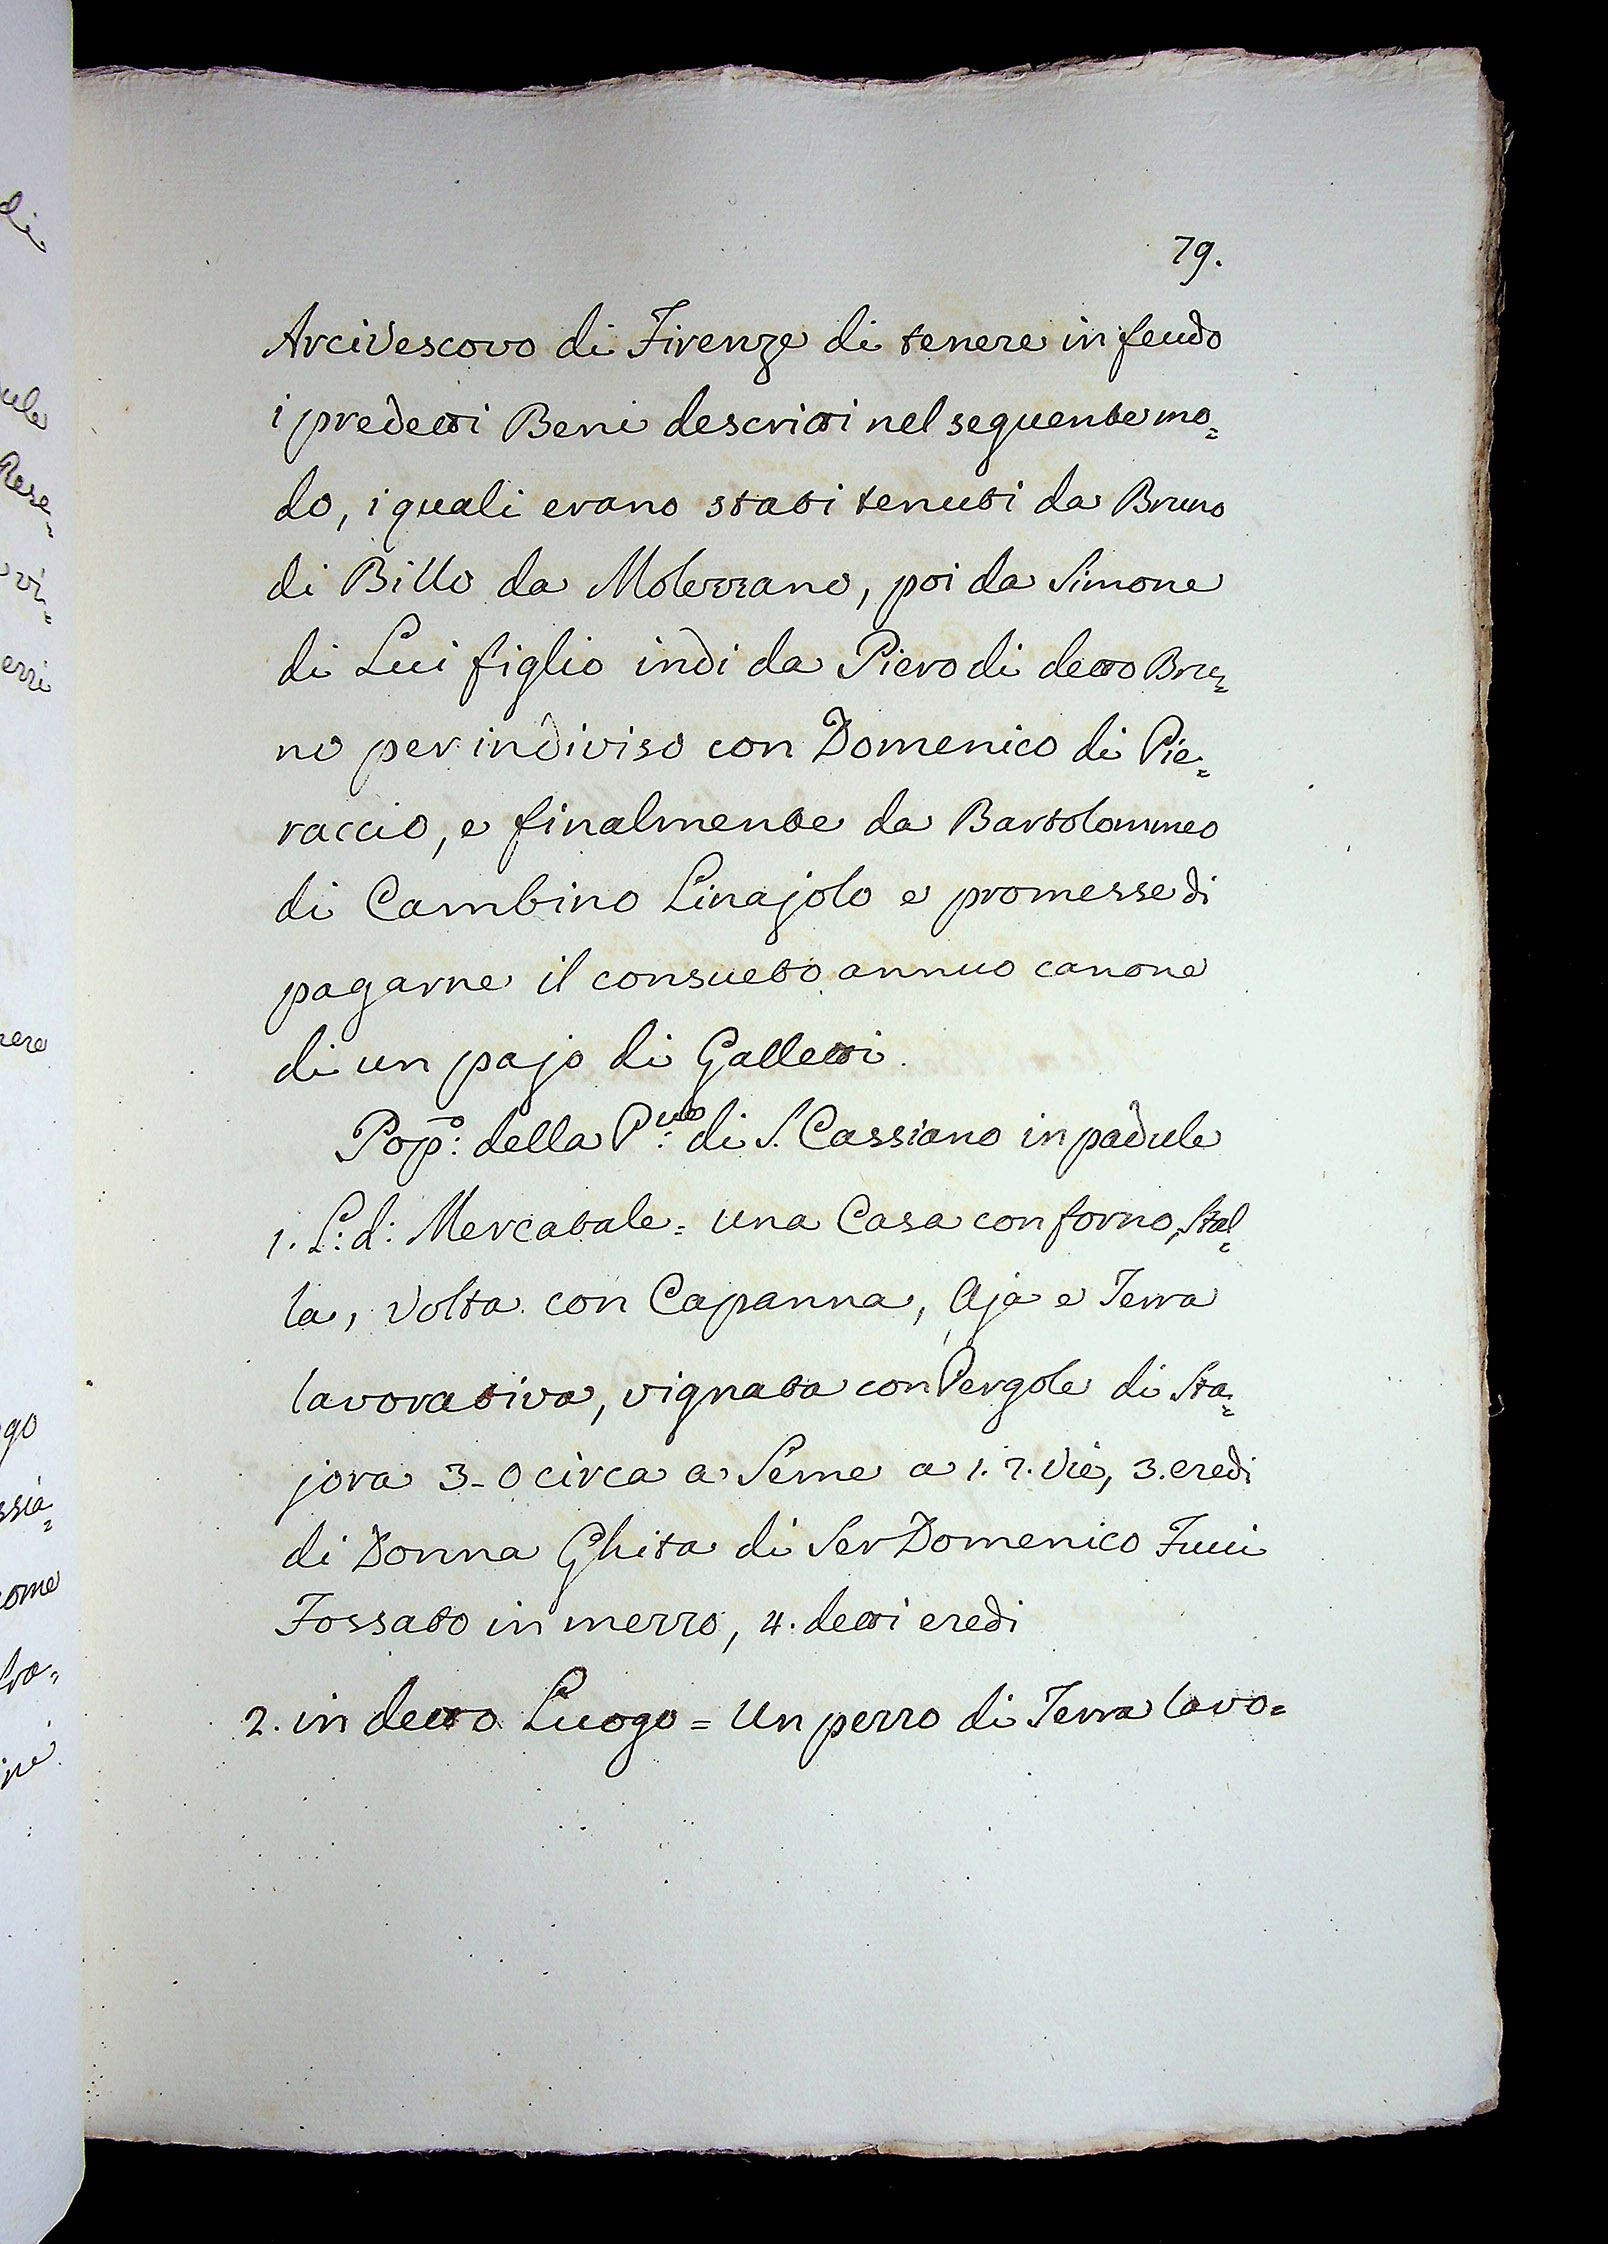 79.
Arcivescovo di Firenze di tenere in feudo
i predetti Beni descritti nel seguente mo=
do, i quali erano stati tenuti da Bruno
di Billo da Molezzano, poi da Simone
di Lui figlio indi da Piero di detto Bru=
no per indiviso con Domenico di Pie=
raccio, e finalmente da Bartolommeo
di Cambino Linajolo e promesse di
pagarne il consueto annuo canone
di un pajo di Galletti.
Pop.o: della P.ve: di S. Cassiano in padule
1. L: d: Mercatale = una Casa con forno, Stal=
la, Volta con Capanna, Aja e Terra
lavorativa, vignata con Pergole di Sta=
jora 3-0 circa a Seme a 1. 2. Vie, 3. eredi
di Donna Ghita di Ser Domenico Fucci
Fossato in mezzo, 4. detti eredi
2. in detto Luogo = Un pezzo di Terra lavo=